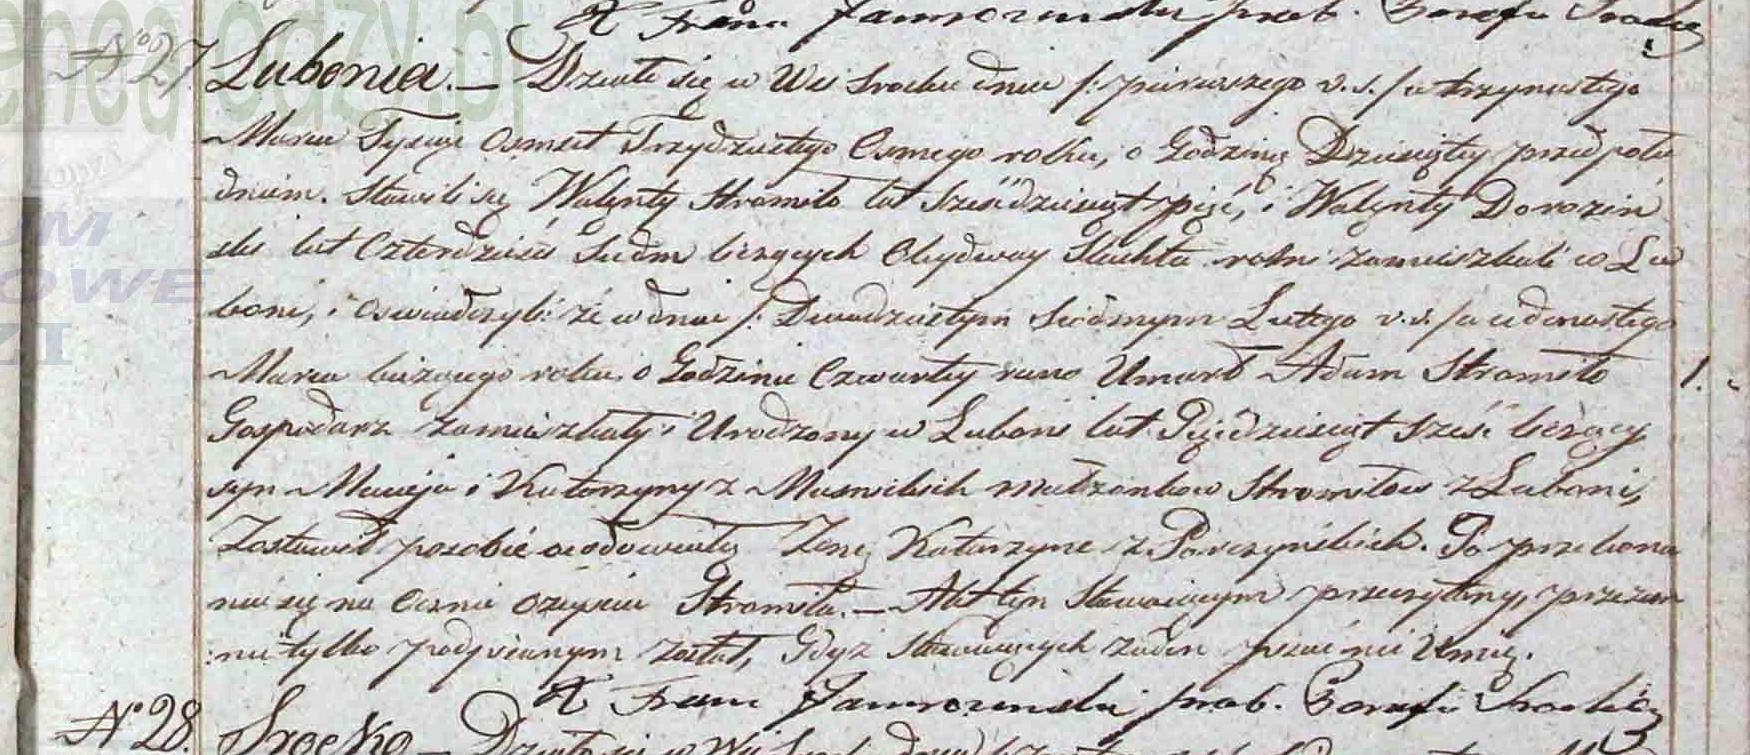 X Fran Jamrozinski prob. Parafii Srocki
No 27. Lubonia. — Działo się w Wsi Srocku dnia /: pierwszego v. s. /a trzynastego
Marca Tysiąc Osmset Trzydziestego Osmego roku, o Godzinię Dziesiątey przed połu
dniem. Stawili się Walenty Stromiło lat Sześdziesiąt pięć, i Walenty Doroziń
ski lat Czterdzieści Siedm liczących Obydway Slachta rolni zamieszkali w Lu
boni, i oswiadczyli że w dniu /: Dwudziestym Siódmym Lutego v. s. /a iedenastego
Marca bieżącego roku, o Godzinie Czwartey rano Umarł Adam Stromiło
Gospodarz zamieszkały i Urodzony w Luboni lat Pięćdziesiąt sześć liczący
syn Macieja i Katarzyny z małżonków Stromiłow z Luboni,
Zostawił posobie owdowiałą Żonę Katarzyne z Parczyńskich. Po przekona
niu się na Ocznie o zeyściu Stromiła. — Akt ten Stawaiącym przeczytany, przez nas
nie tylko podpisanym został, Gdyż stawaiących żaden pisać nie Umię.
X Fran Jamrozinski prob. Parafii Srocki
No 28. Srocko — Działo się w Wsi Srocku dnia
GENEALODZY.PL
ŁODZI
UM
OWE
ZI
1.